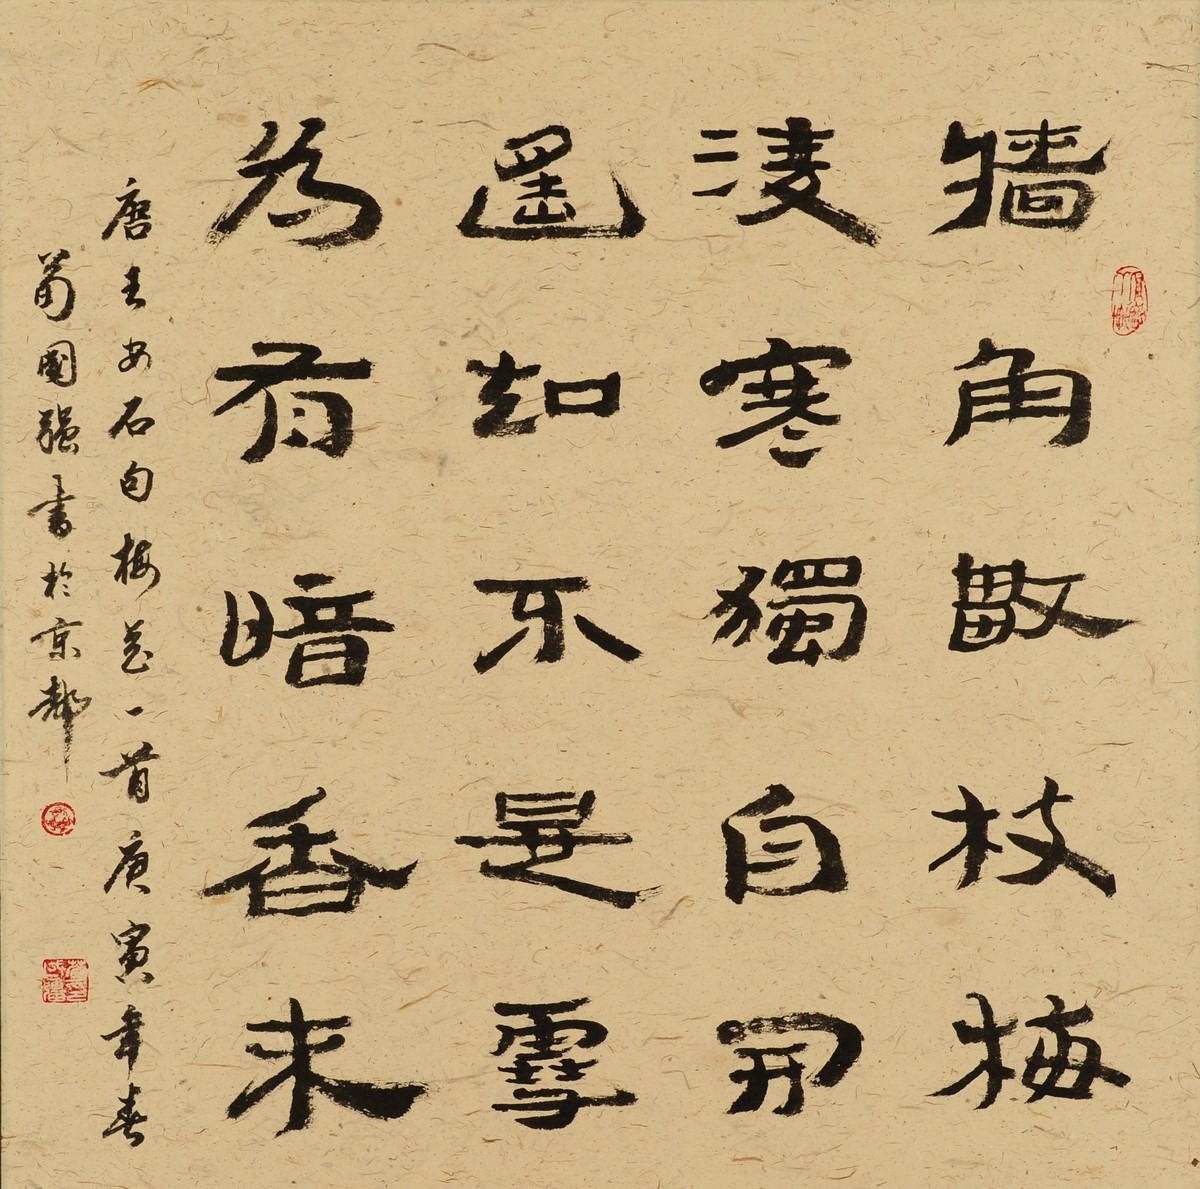 牆角數枝梅
凌寒獨自開
遥知不是雪
为有暗香来
唐王安石句梅花一首庚寅年春
荀國强書於京都